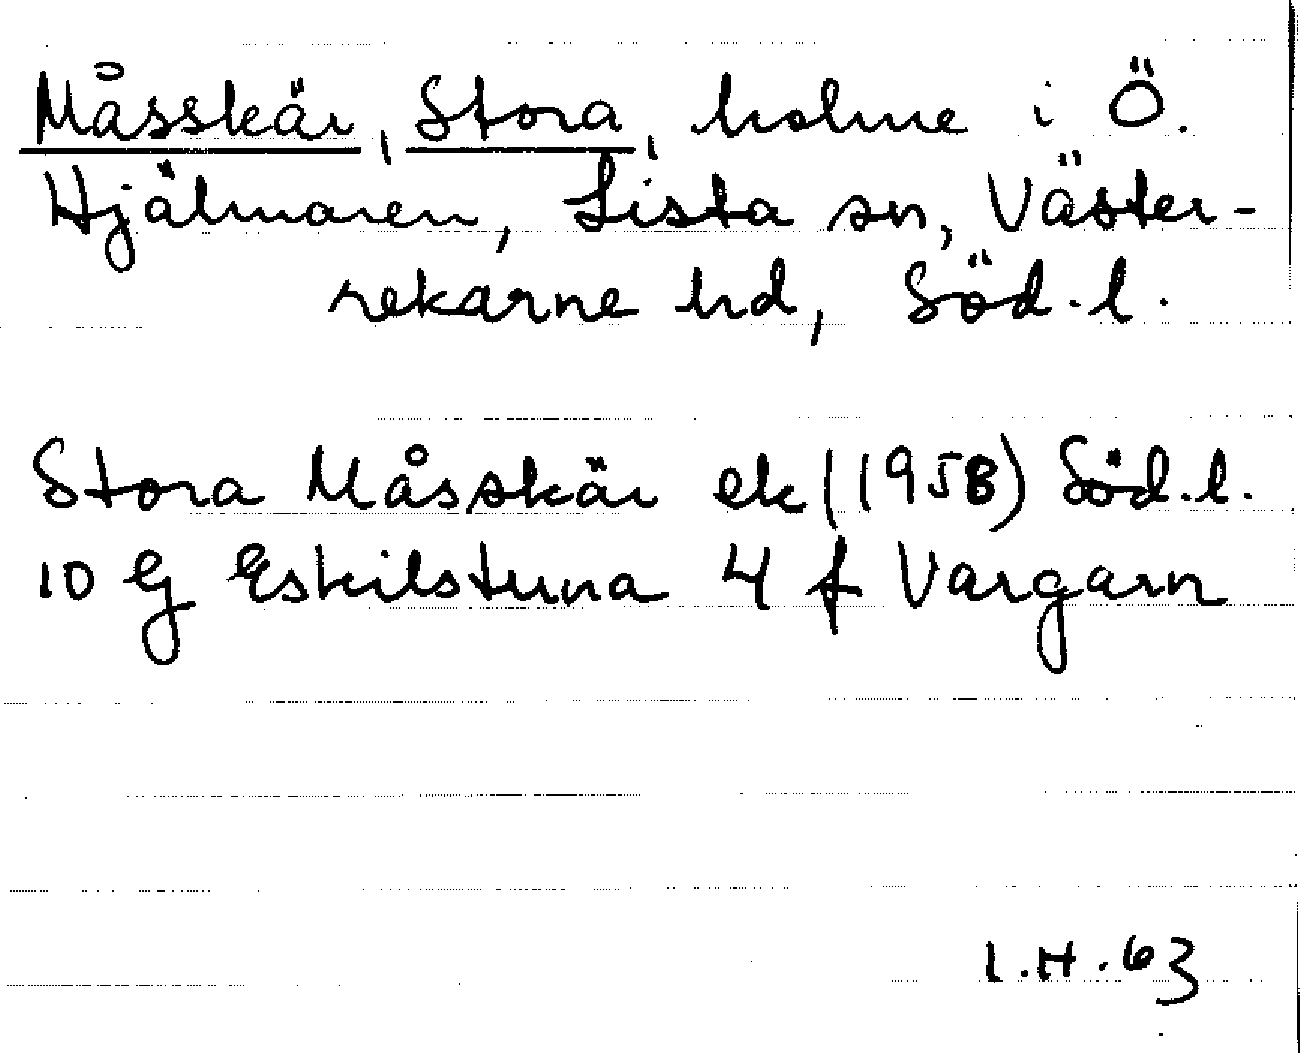 Måsskär, Stora, holme i Ö.
Hjälmaren, Lista sn, Väster-
rekarne hd, Söd.l.
Stora Måsskär ek (1958) Söd.l.
10 G Eskilstuna 4 f Vargarn
I.H.63